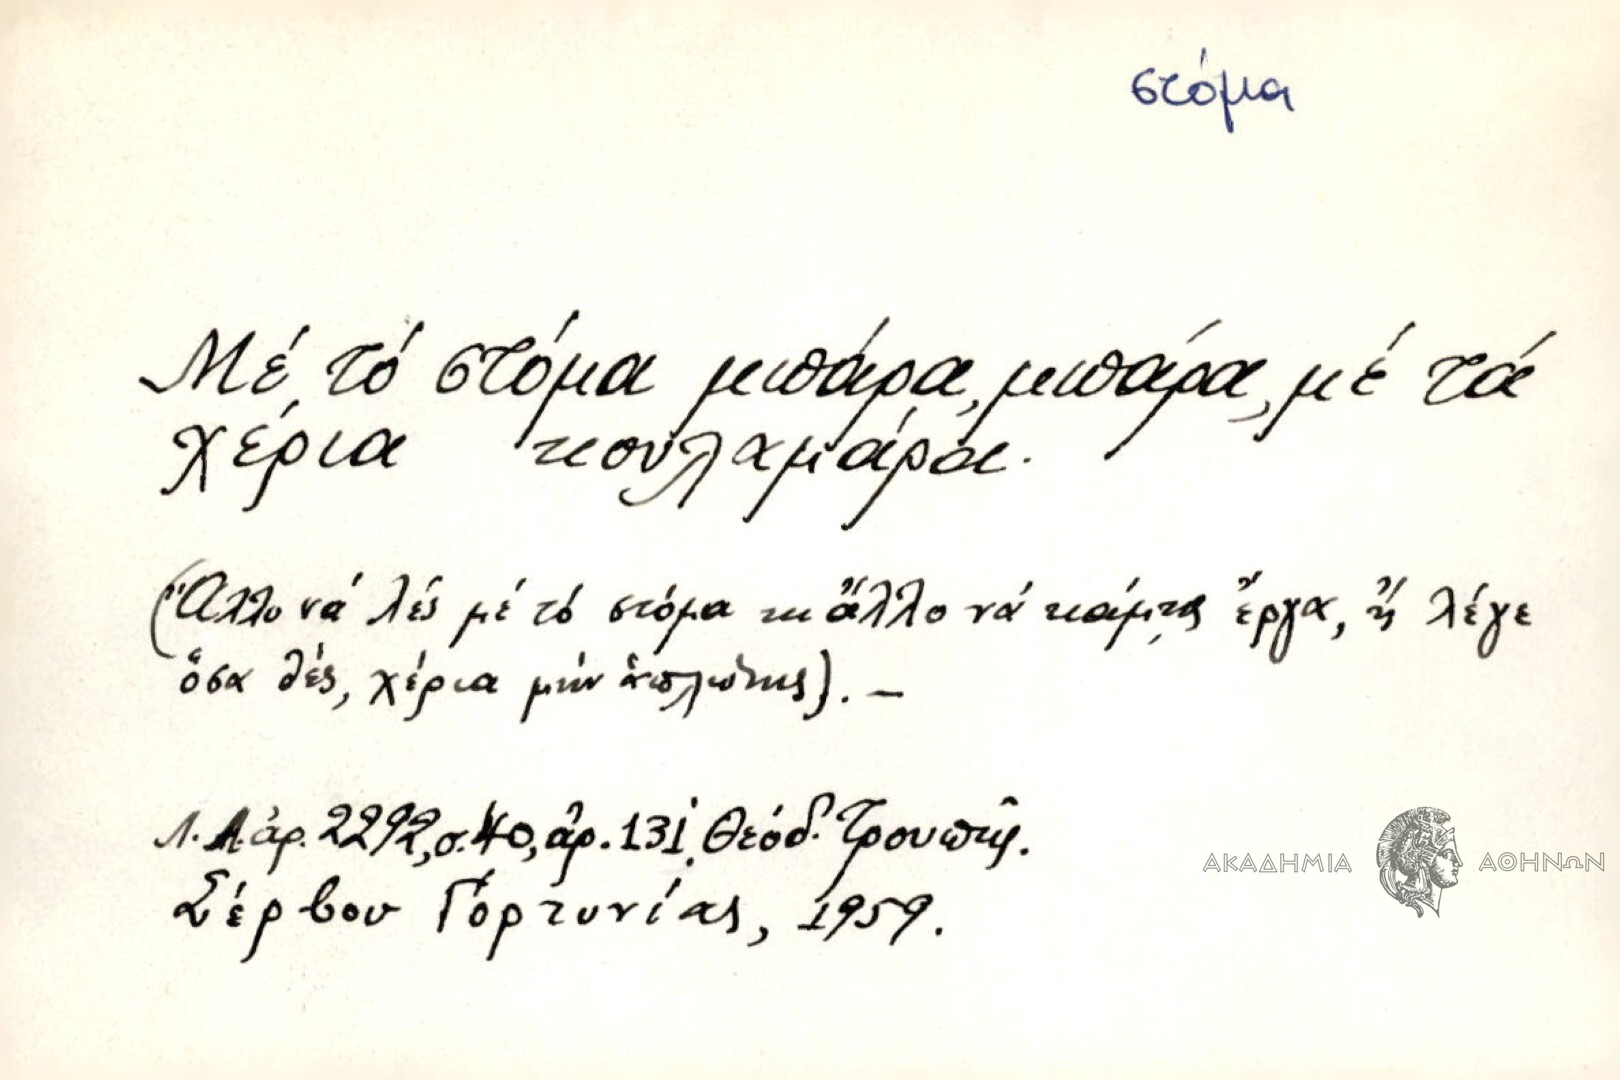 στόμα
Μέ τό στόμα μπάρα, μπάρα, μέ τά
χέρια κουλαμάρα.
(Ἄλλο νά λές μέ τό στόμα κι ἄλλο νά κάμῃς ἔργα, ἤ λέγε
ὅσα θές, χέρια μήν ἁπλώνῃς). –
Λ.Α. ἀρ. 2292, σ. 40, ἀρ. 131, Θεόδ. Τρουπῆς.
Σέρβου Γορτυνίας, 1959.
ΑΚΑΔΗΜΙΑ ΑΘΗΝΩΝ